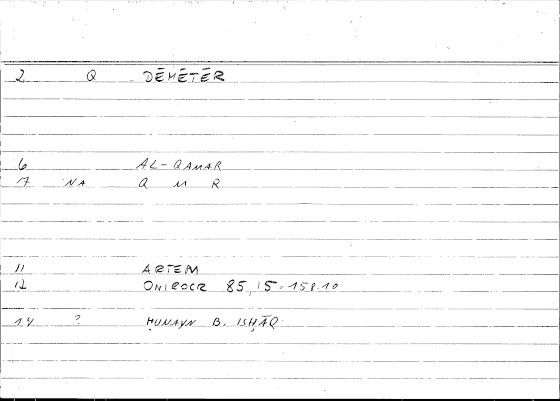 2 Q DĒMĒTĒR
6 AL-QAMAR
17 NA Q M R
11 ARTEM
12 ONIROCR 85,15 = 158.10
14 ? ḤUNAYN B. ISḤĀQ